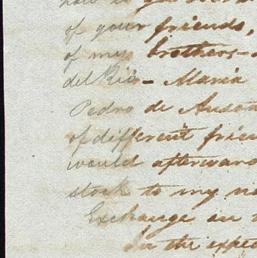 of your friends,
of my brothers-
del Rio - Maria
Pedro de
of different frien
would afterward
stock to my na
Exchange an
In the expec